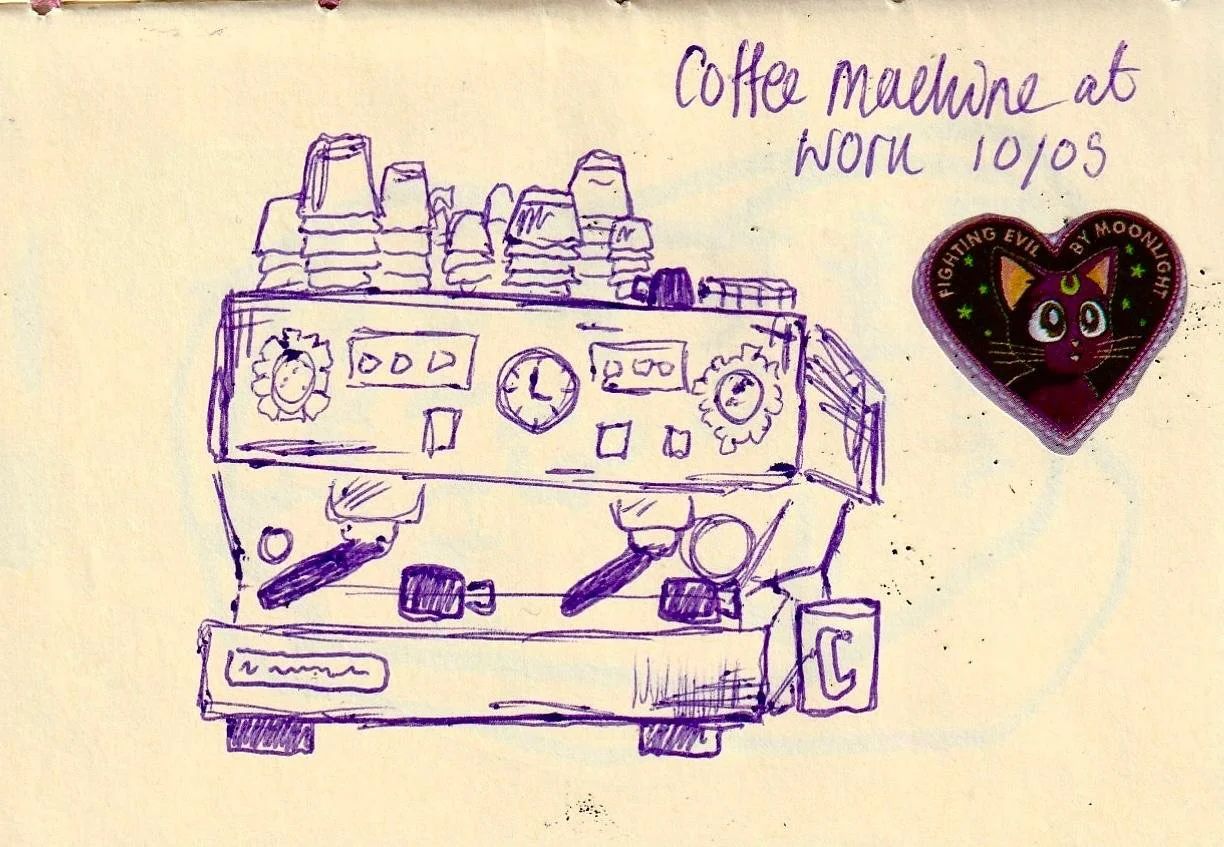 Coffee machine at
work 10/05
FIGHTING EVIL BY MOONLIGHT